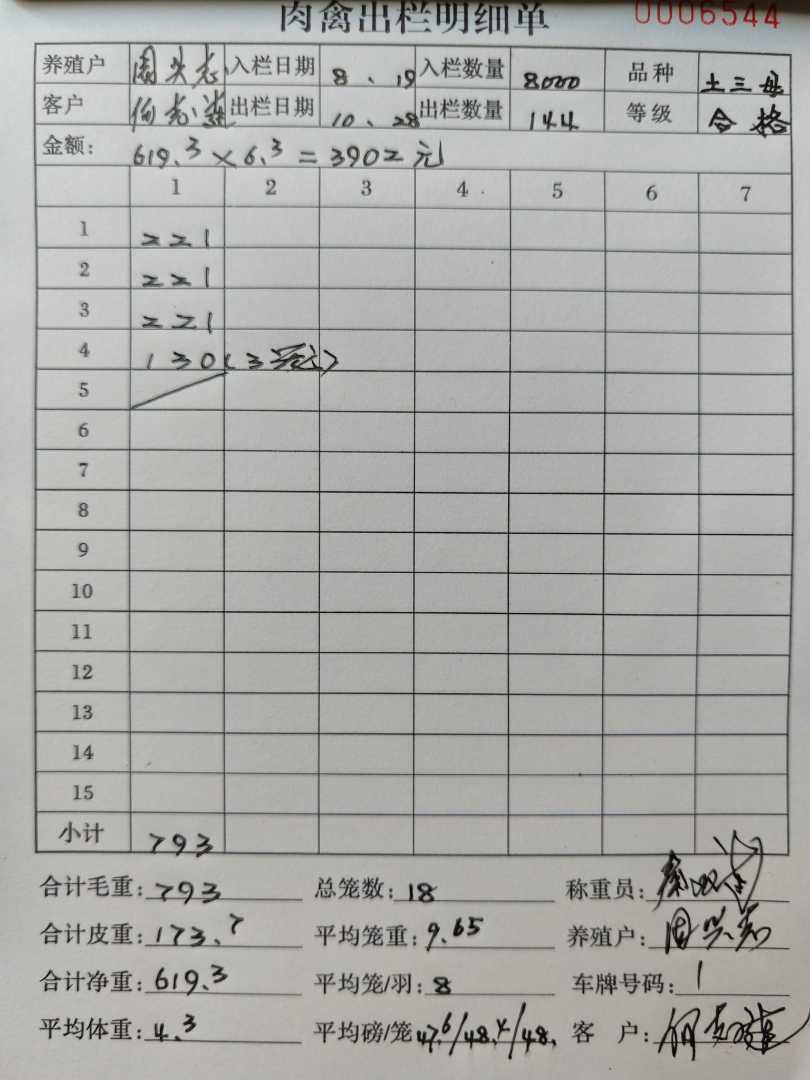 肉禽出栏明细单 0006544
养殖户 周兴志 入栏日期 8、19 入栏数量 8000 品种 土三母
客户 出栏日期 10、28 出栏数量 144 等级 合格
金额: 619.3×6.3=3902元
1 2 3 4 5 6 7
1 221
2 221
3 221
4 130(3笼)
5
6
7
8
9
10
11
12
13
14
15
小计 793
合计毛重: 793 总笼数: 18 称重员:
合计皮重: 173.7 平均笼重: 9.65 养殖户: 周兴志
合计净重: 619.3 平均笼/羽: 8 车牌号码: 1
平均体重: 4.3 平均磅/笼 47.6/48.4/48. 客 户: